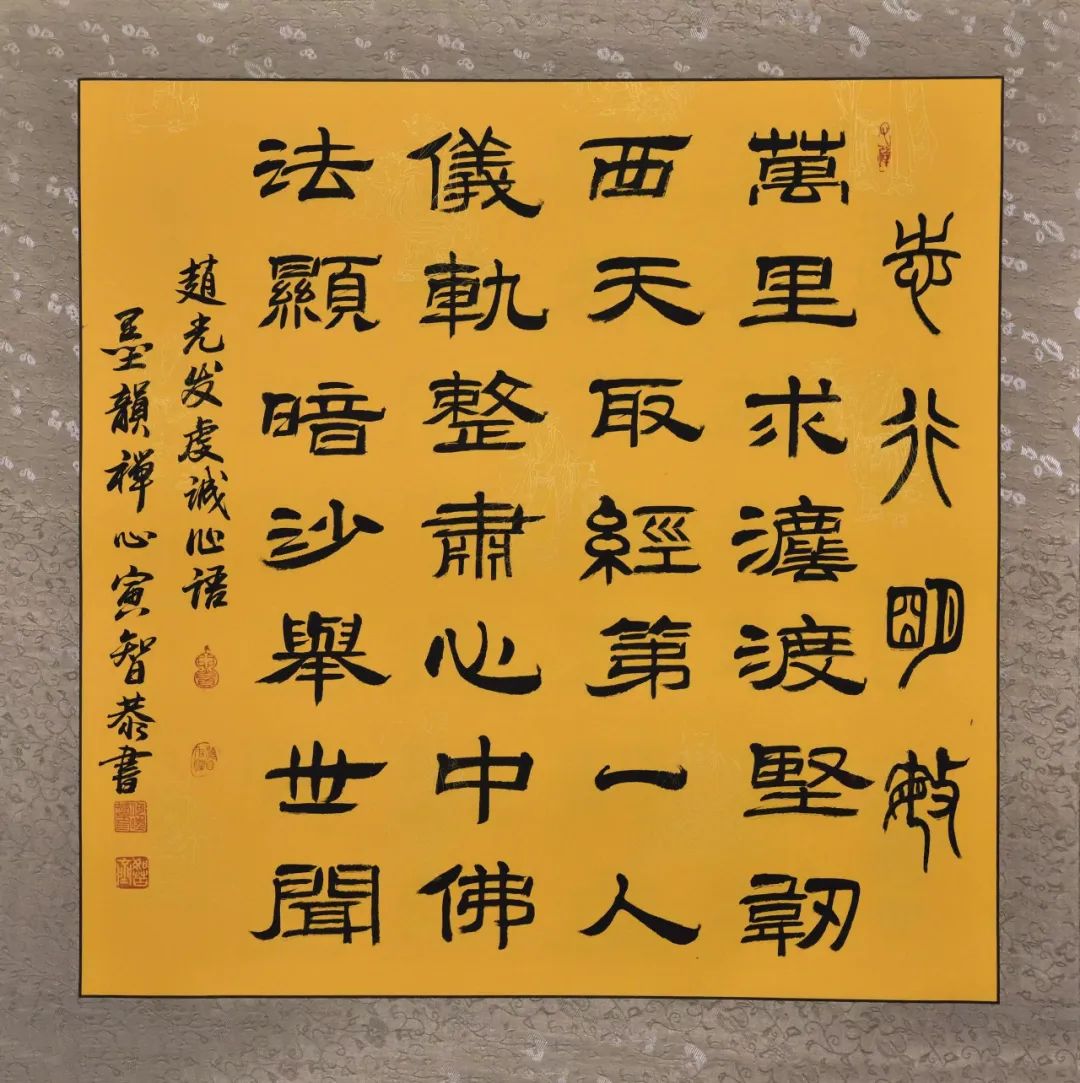 志行明敏
萬里求灋渡堅韌
西天取經第一人
儀軌整肅心中佛
法顯暗沙舉世聞
趙光发虔诚心语
墨韻禪心寅智恭書